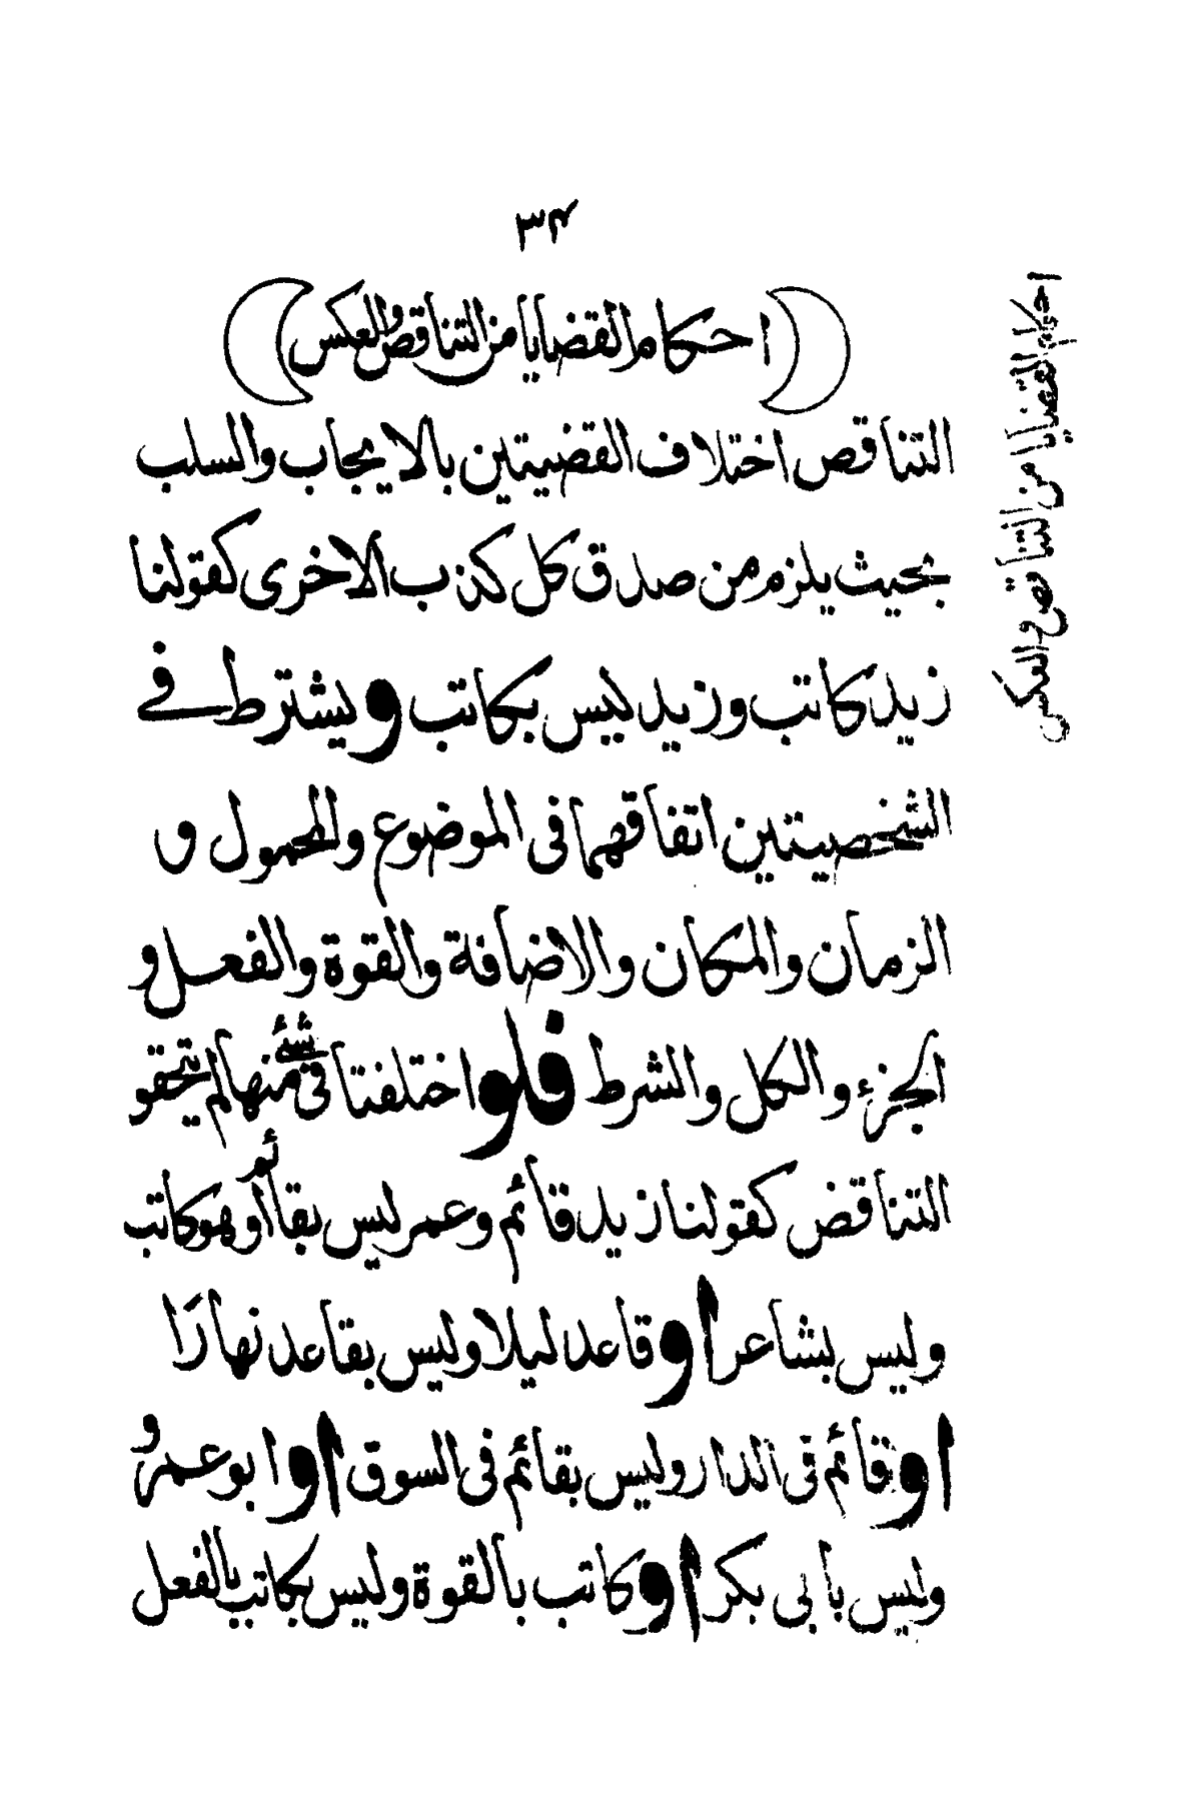 ٣٤
(احكام القضايا من التناقص والعكس)
احكام القضايا من التناقص والعكس
التناقص اختلاف القضيتين بالايجاب والسلب
بحيث يلزم من صدق كل كذب الاخرى كقولنا
زيد كاتب وزيد ليس بكاتب ويشترط في
الشخصيتين اتفاقهما فى الموضوع والمحمول و
الزمان والمكان والاضافة والقوة والفعل و
الجزء والكل والشرط فلو اختلفتا فى شئ منهالم يتحقق
التناقض كقولنا زيد قائم وعمر ليس بقائم او هو كاتب
وليس بشاعر او قاعد ليلا وليس بقاعد نهارًا
او قائم فى الدار وليس بقائم فى السوق او ابو عمرو
وليس بابى بكر او كاتب بالقوة وليس بكاتب بالفعل